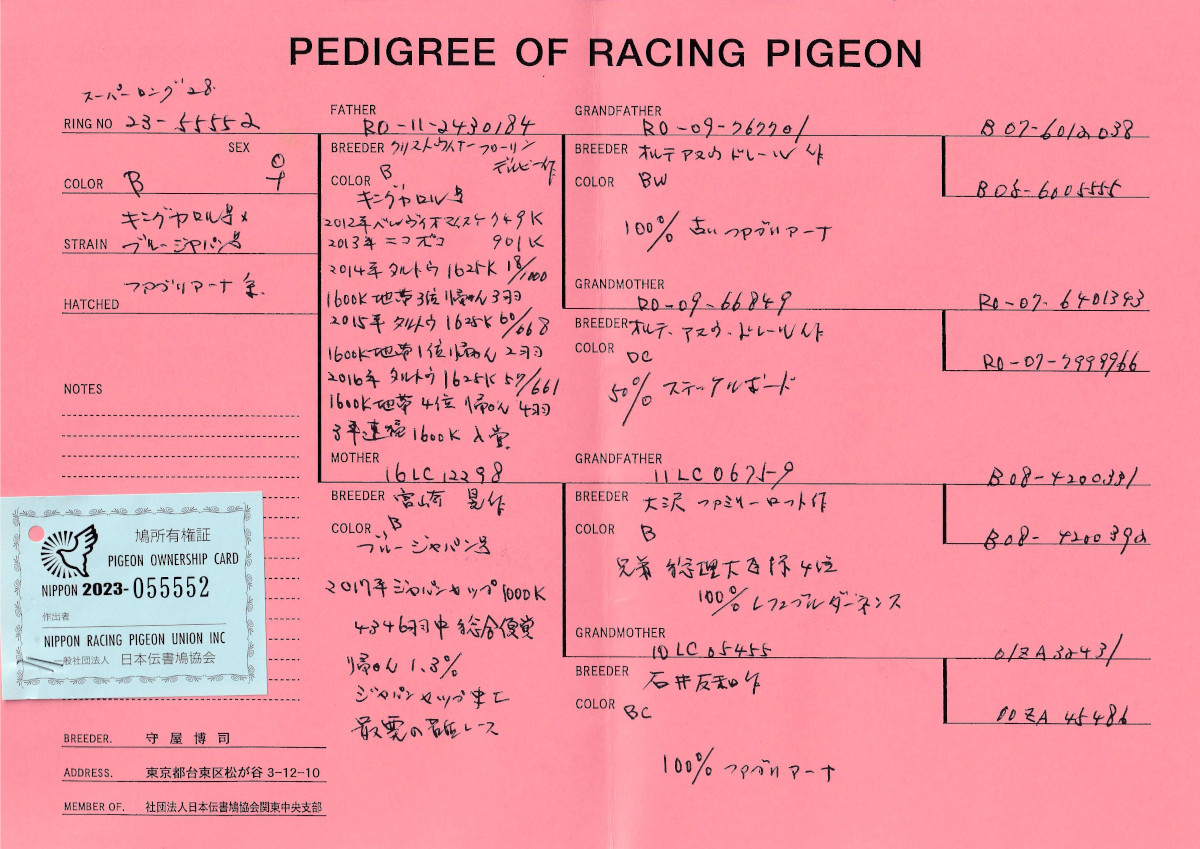 PEDIGREE OF RACING PIGEON
スーパーロング28
RING NO 23-55552
SEX ♀
COLOR B
キングヤロル号×
STRAIN ブルージャパン号
ファブリアーナ系
HATCHED
NOTES
鳩所有権証
PIGEON OWNERSHIP CARD
NIPPON 2023-055552
作出者
NIPPON RACING PIGEON UNION INC
一般社団法人 日本伝書鳩協会
BREEDER. 守屋博司
ADDRESS. 東京都台東区松が谷3-12-10
MEMBER OF. 社団法人日本伝書鳩協会関東中央支部
FATHER
RO-11-2430184
BREEDER クリストヴィナーフローリン
デルビー作
COLOR B
キングヤロル号
2012年ベルヴィオマイスケ749K
2013年ニコポコ 901K
2014年タルトウ1625K 18/1000
1600K地帯3位帰還3羽
2015年タルトウ1625K 60/668
1600K地帯1位帰還2羽
2016年タルトウ1625K 57/661
1600K地帯4位帰還4羽
3年連続1600K入賞
MOTHER
16LC12298
BREEDER 宮崎 晃作
COLOR B
ブルージャパン号
2017年ジャパンカップ1000K
4346羽中総合優勝
帰還1.3%
ジャパンカップ史上
最悪の苦難レース
GRANDFATHER
RO-09-267701
BREEDER オルテアヌウドレール作
COLOR BW
100% 古いファブリアーナ
GRANDMOTHER
RO-09-66849
BREEDER オルテ・アヌウ・ドレール作
COLOR DC
50% ステッケルボード
GRANDFATHER
11LC0675-9
BREEDER 大沢ファミリーロフト作
COLOR B
兄弟 総理大臣杯4位
100%レフェブルダーネンス
GRANDMOTHER
10LC05455
BREEDER 石井友和作
COLOR BC
100% ファブリアーナ
B07-6012038
B08-6005555
RO-07-6401343
RO-07-2999966
B08-4200391
B08-4200392
01ZA32431
00ZA45486